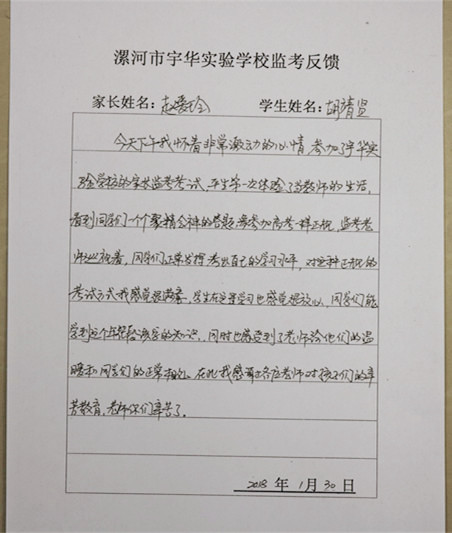 漯河市宇华实验学校监考反馈
家长姓名：赵爱玲 学生姓名：胡靖
今天下午我怀着非常激动的心情，参加了宇华实
验学校的家长监考考试，平生第一次体验了当教师的生活，
看到同学们一个个聚精会神的答题，参加高考一样正规，监考老
师巡视着，同学们正常发挥考出自己的学习水平，对这种正规的
考试方式我感觉很满意，学生在这里学习也感觉很放心，同学们能
学到这个年龄段应的知识，同时也感受到了老师给他们的温
暖和同学们的正常相处。在此我感谢各位老师对孩子们的辛
苦教育，老师你们辛苦了。
2018 年 1 月 30 日